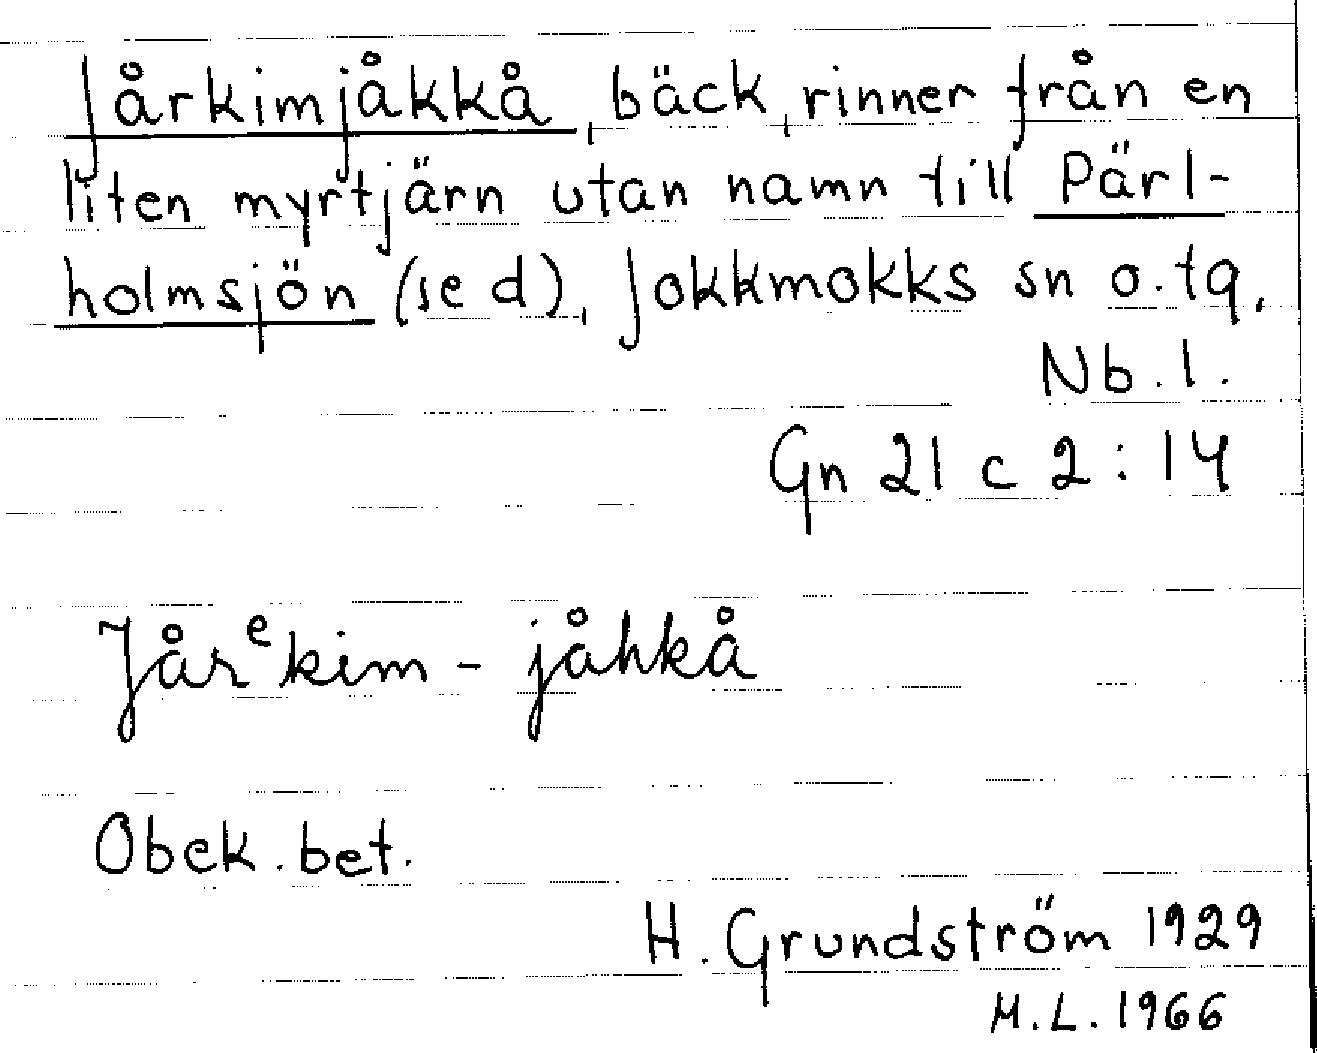 Jårkimjåkkå, bäck, rinner från en
liten myrtjärn utan namn till Pärl-
holmsjön (se d), Jokkmokks sn o. tg,
Nb. l.
Gn 21 c 2:14
Jårᵉkim - jåhkå
Obek. bet.
H. Grundström 1929
M.L. 1966